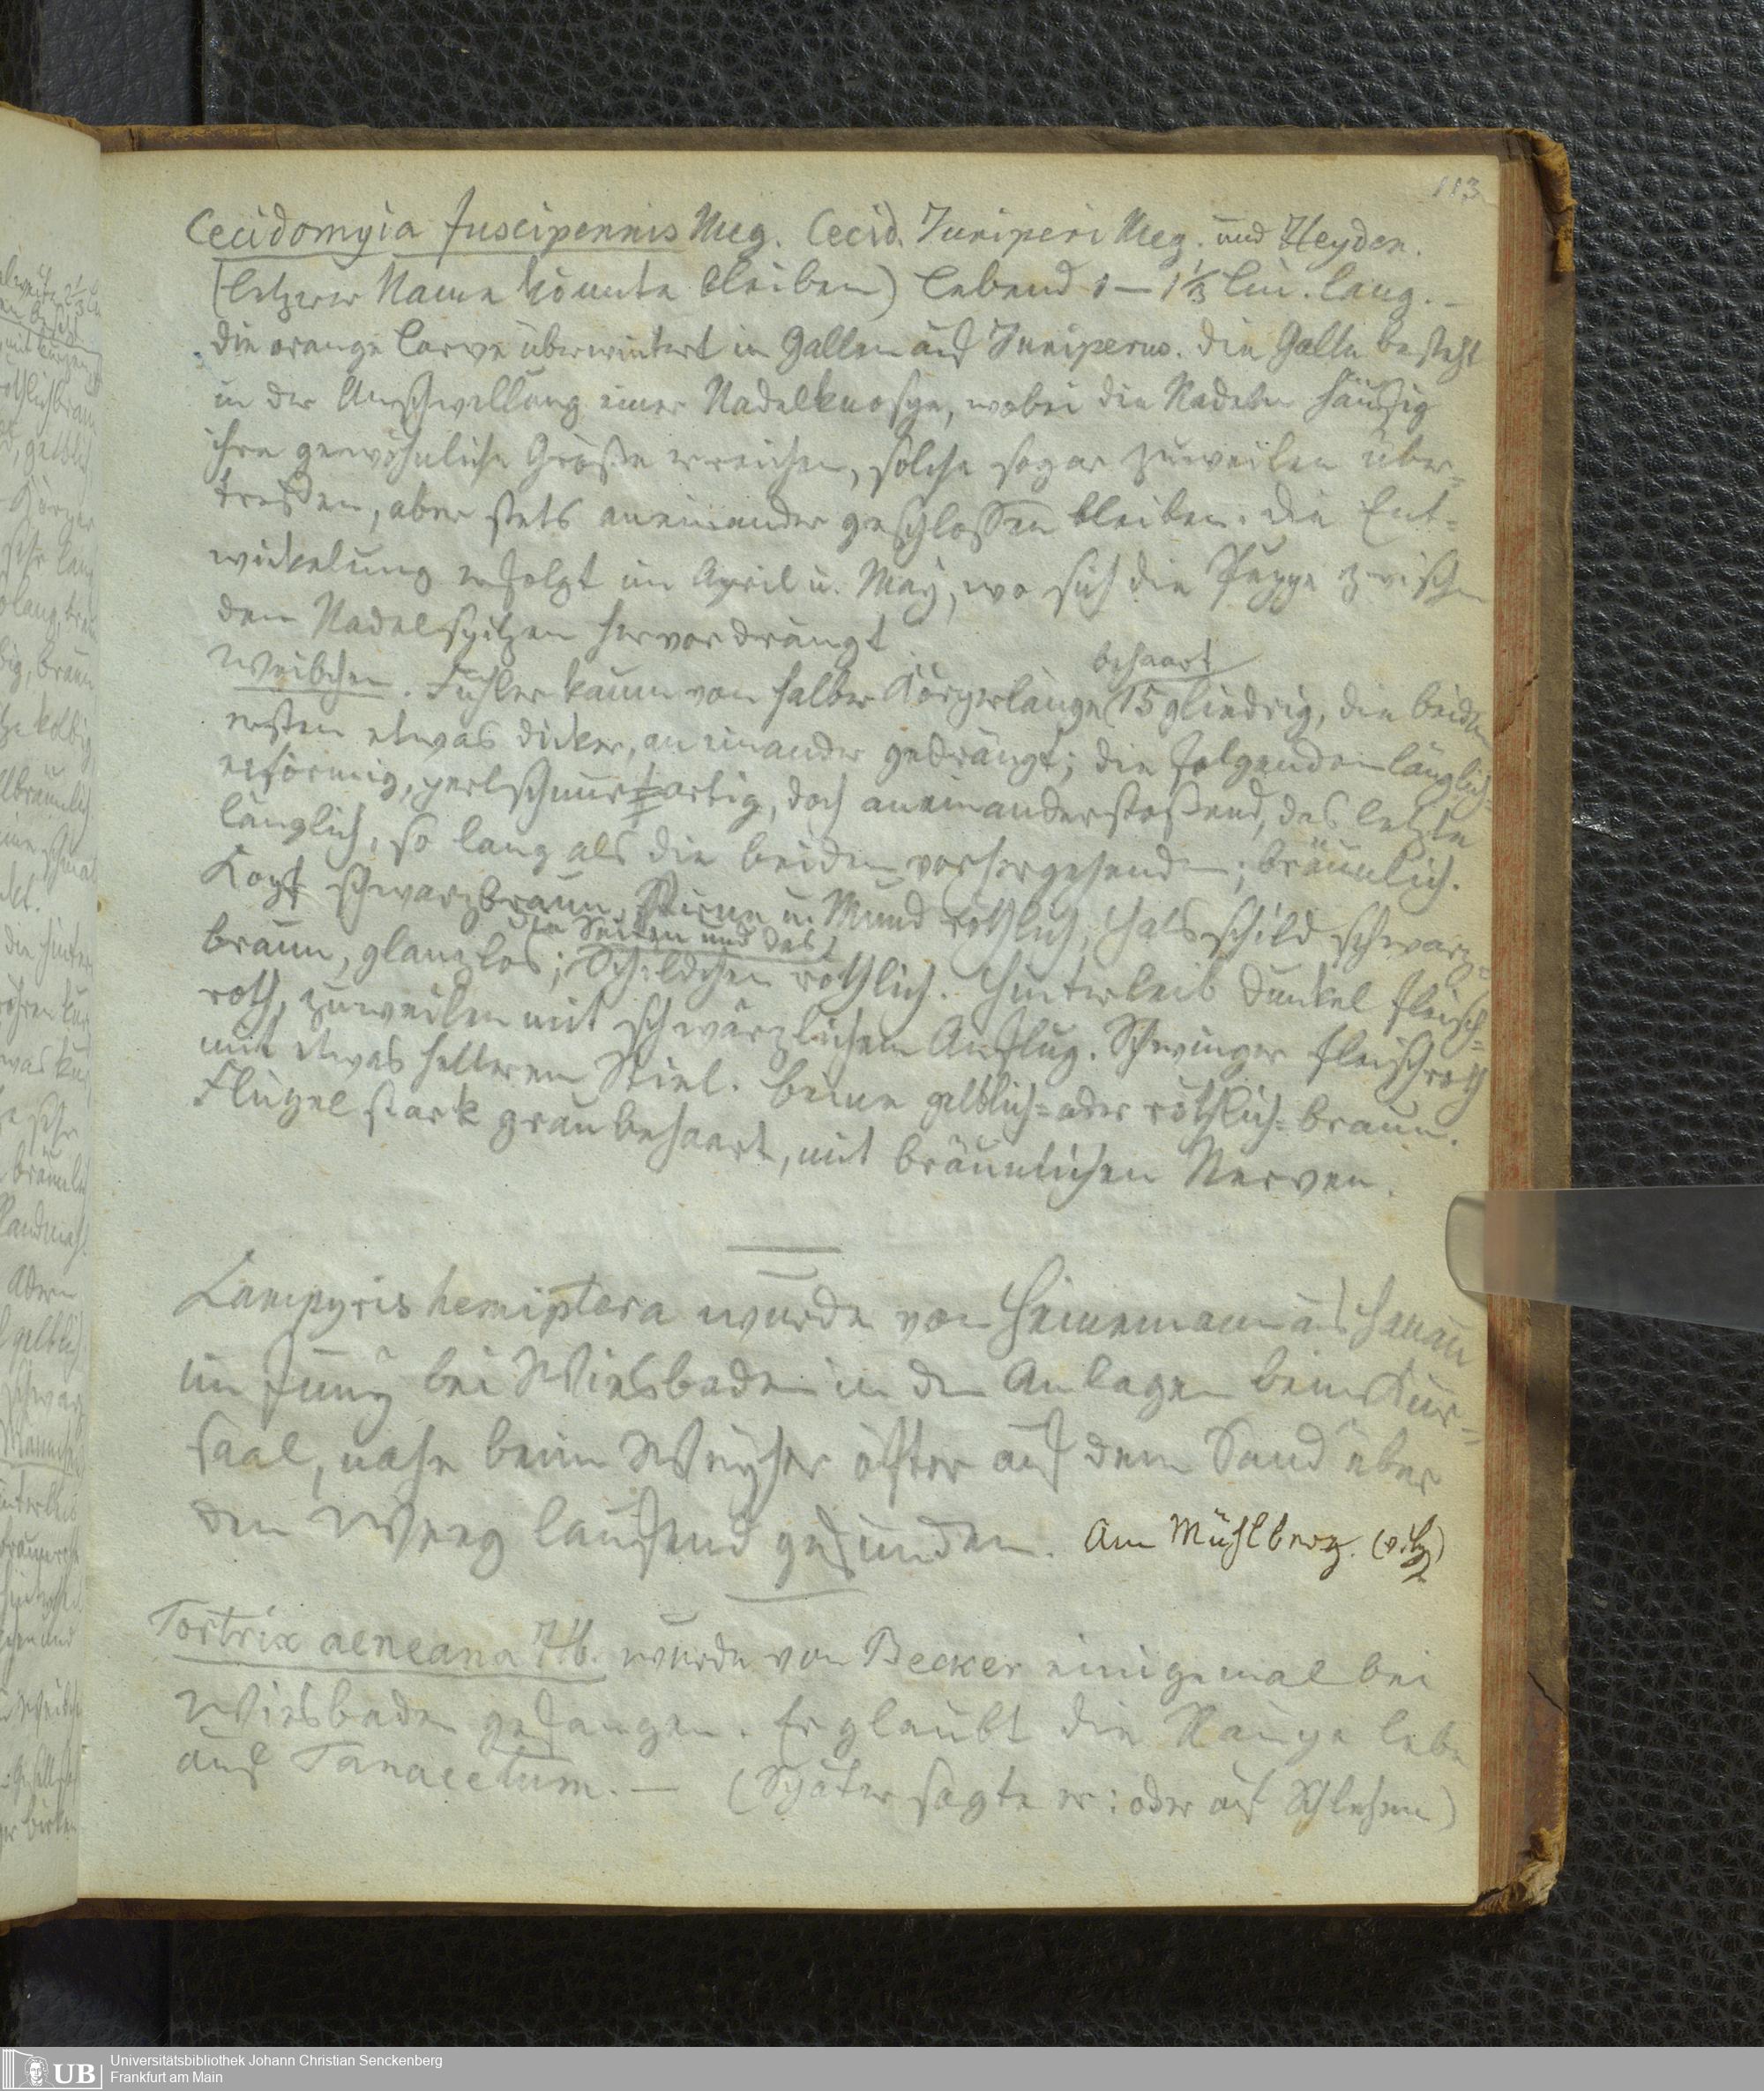 113
Cecidomyia fuscipennis Meg. Cecid. Juniperi Meg. und Heyden.
(letzerer Name könnte bleiben) Lebend 1 – 1⅓ Lin. lang. –
Die orange Larve überwintert in Gallen auf Juniperus. Die Galle besteht
in der Anschwellung einer Nadelknospe, wobei die Nadeln häufig
ihre gewöhnliche Größe erreichen, solche sogar zuweilen über=
treffen, aber stets aneinander geschlossen bleiben. Die Ent=
wickelung erfolgt im April u. May, wo sich die Puppe zwischen
den Nadelspitzen hervordrängt.
behaart
Weibchen. Fühler kaum von halber Körperlänge 15 gliedrig, die beiden
ersten etwas dicker, aneinander gedrängt; die folgenden länglich=
eiförmig, perlschnurartig, doch aneinanderstoßend, das letzte
länglich, so lang als die beiden vorhergehenden; bräunlich.
Kopf schwarzbraun, Stirne u. Mund röthlich, Halsschild schwarz=
die Seiten und das
braun, glanzlos; Schildchen röthlich. Hinterleib dunkel fleisch=
roth, zuweilen mit schwärzlichem Anflug. Schwinger fleischroth
mit etwas hellerem Stiel. Beine gelblich= oder röthlich=braun.
Flügel stark grau behaart, mit bräunlichen Nerven.
Lampyris hemiptera wurde von Heinemann aus Hanau
im Juny bei Wiesbaden in den Anlagen beim Kur=
saal, nahe beim Weyher öfter auf dem Sand über
den Weeg laufend gefunden. Am Mühlberg.
Tortrix aeneana Hb. wurde von Becker einigemal bei
Wiesbaden gefangen. Er glaubt die Raupe lebe
auf Tanacetum. – (Später sagte er: oder auf Schlehen)
Universitätsbibliothek Johann Christian Senckenberg
Frankfurt am Main
UB